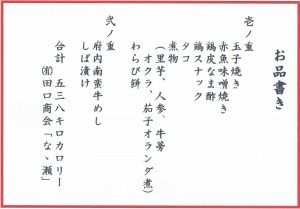 お品書き
壱ノ重
玉子焼き
赤魚味噌焼き
鶏皮なます酢
鶏スナック
タコ
煮物
(里芋、人参、牛蒡
オクラ、茄子オランダ煮)
わらび餅
弐ノ重
府内南蛮牛めし
しば漬け
合計 五三八キロカロリー
㈲田口商会「なゝ瀬」